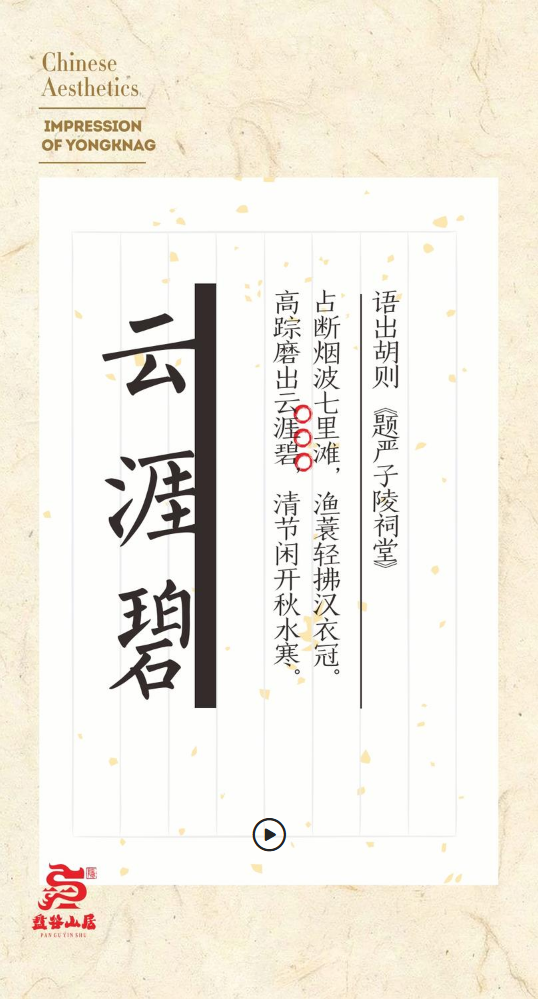 Chinese
Aesthetics
IMPRESSION
OF YONGKNAG
语出胡则《题严子陵祠堂》
占断烟波七里滩，渔蓑轻拂汉衣冠。
高踪磨出云涯碧，清节闲开秋水寒。
云涯碧
盘谷山居
PAN GU YIN SHU